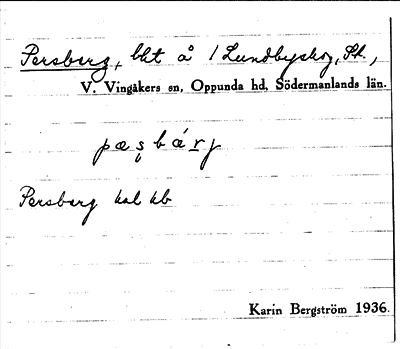 Persberg, bht å 1 Lundbyskog, Sk.,
V. Vingåkers sn, Oppunda hd, Södermanlands län.
pæs̨bárj
Persberg kal kb
Karin Bergström 1936.